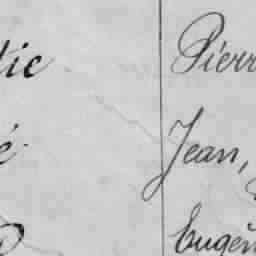 tic Pierr
é Jean,
Eugén